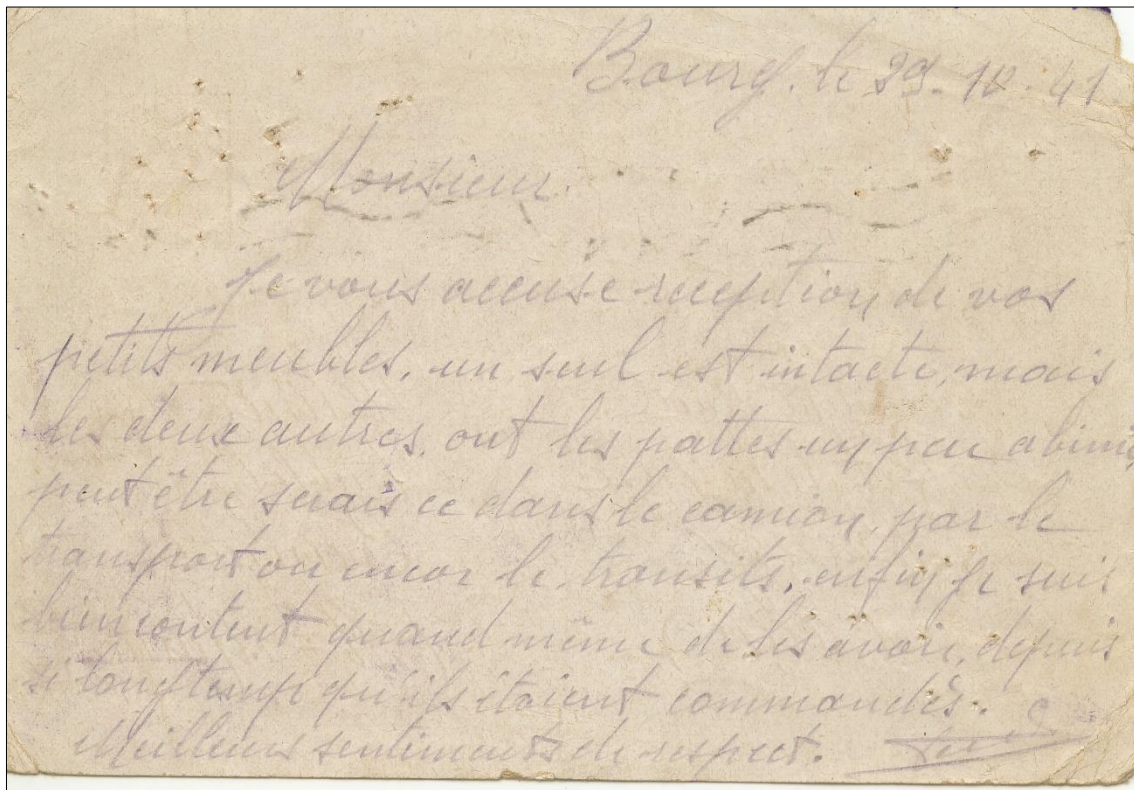 Bourg. le 29. 10. 41
Monsieur.
Je vous accuse reception de vos
petits meubles, un seul est intacte, mais
les deux autres, ont les pattes un peu abimé,
peut être serais ce dans le camion, par le
transport ou encor le transits, enfin je suis
bien content quand même de les avoir, depuis
si longtemp qu'ils étaient commandés.
Meilleurs sentiments de respect.